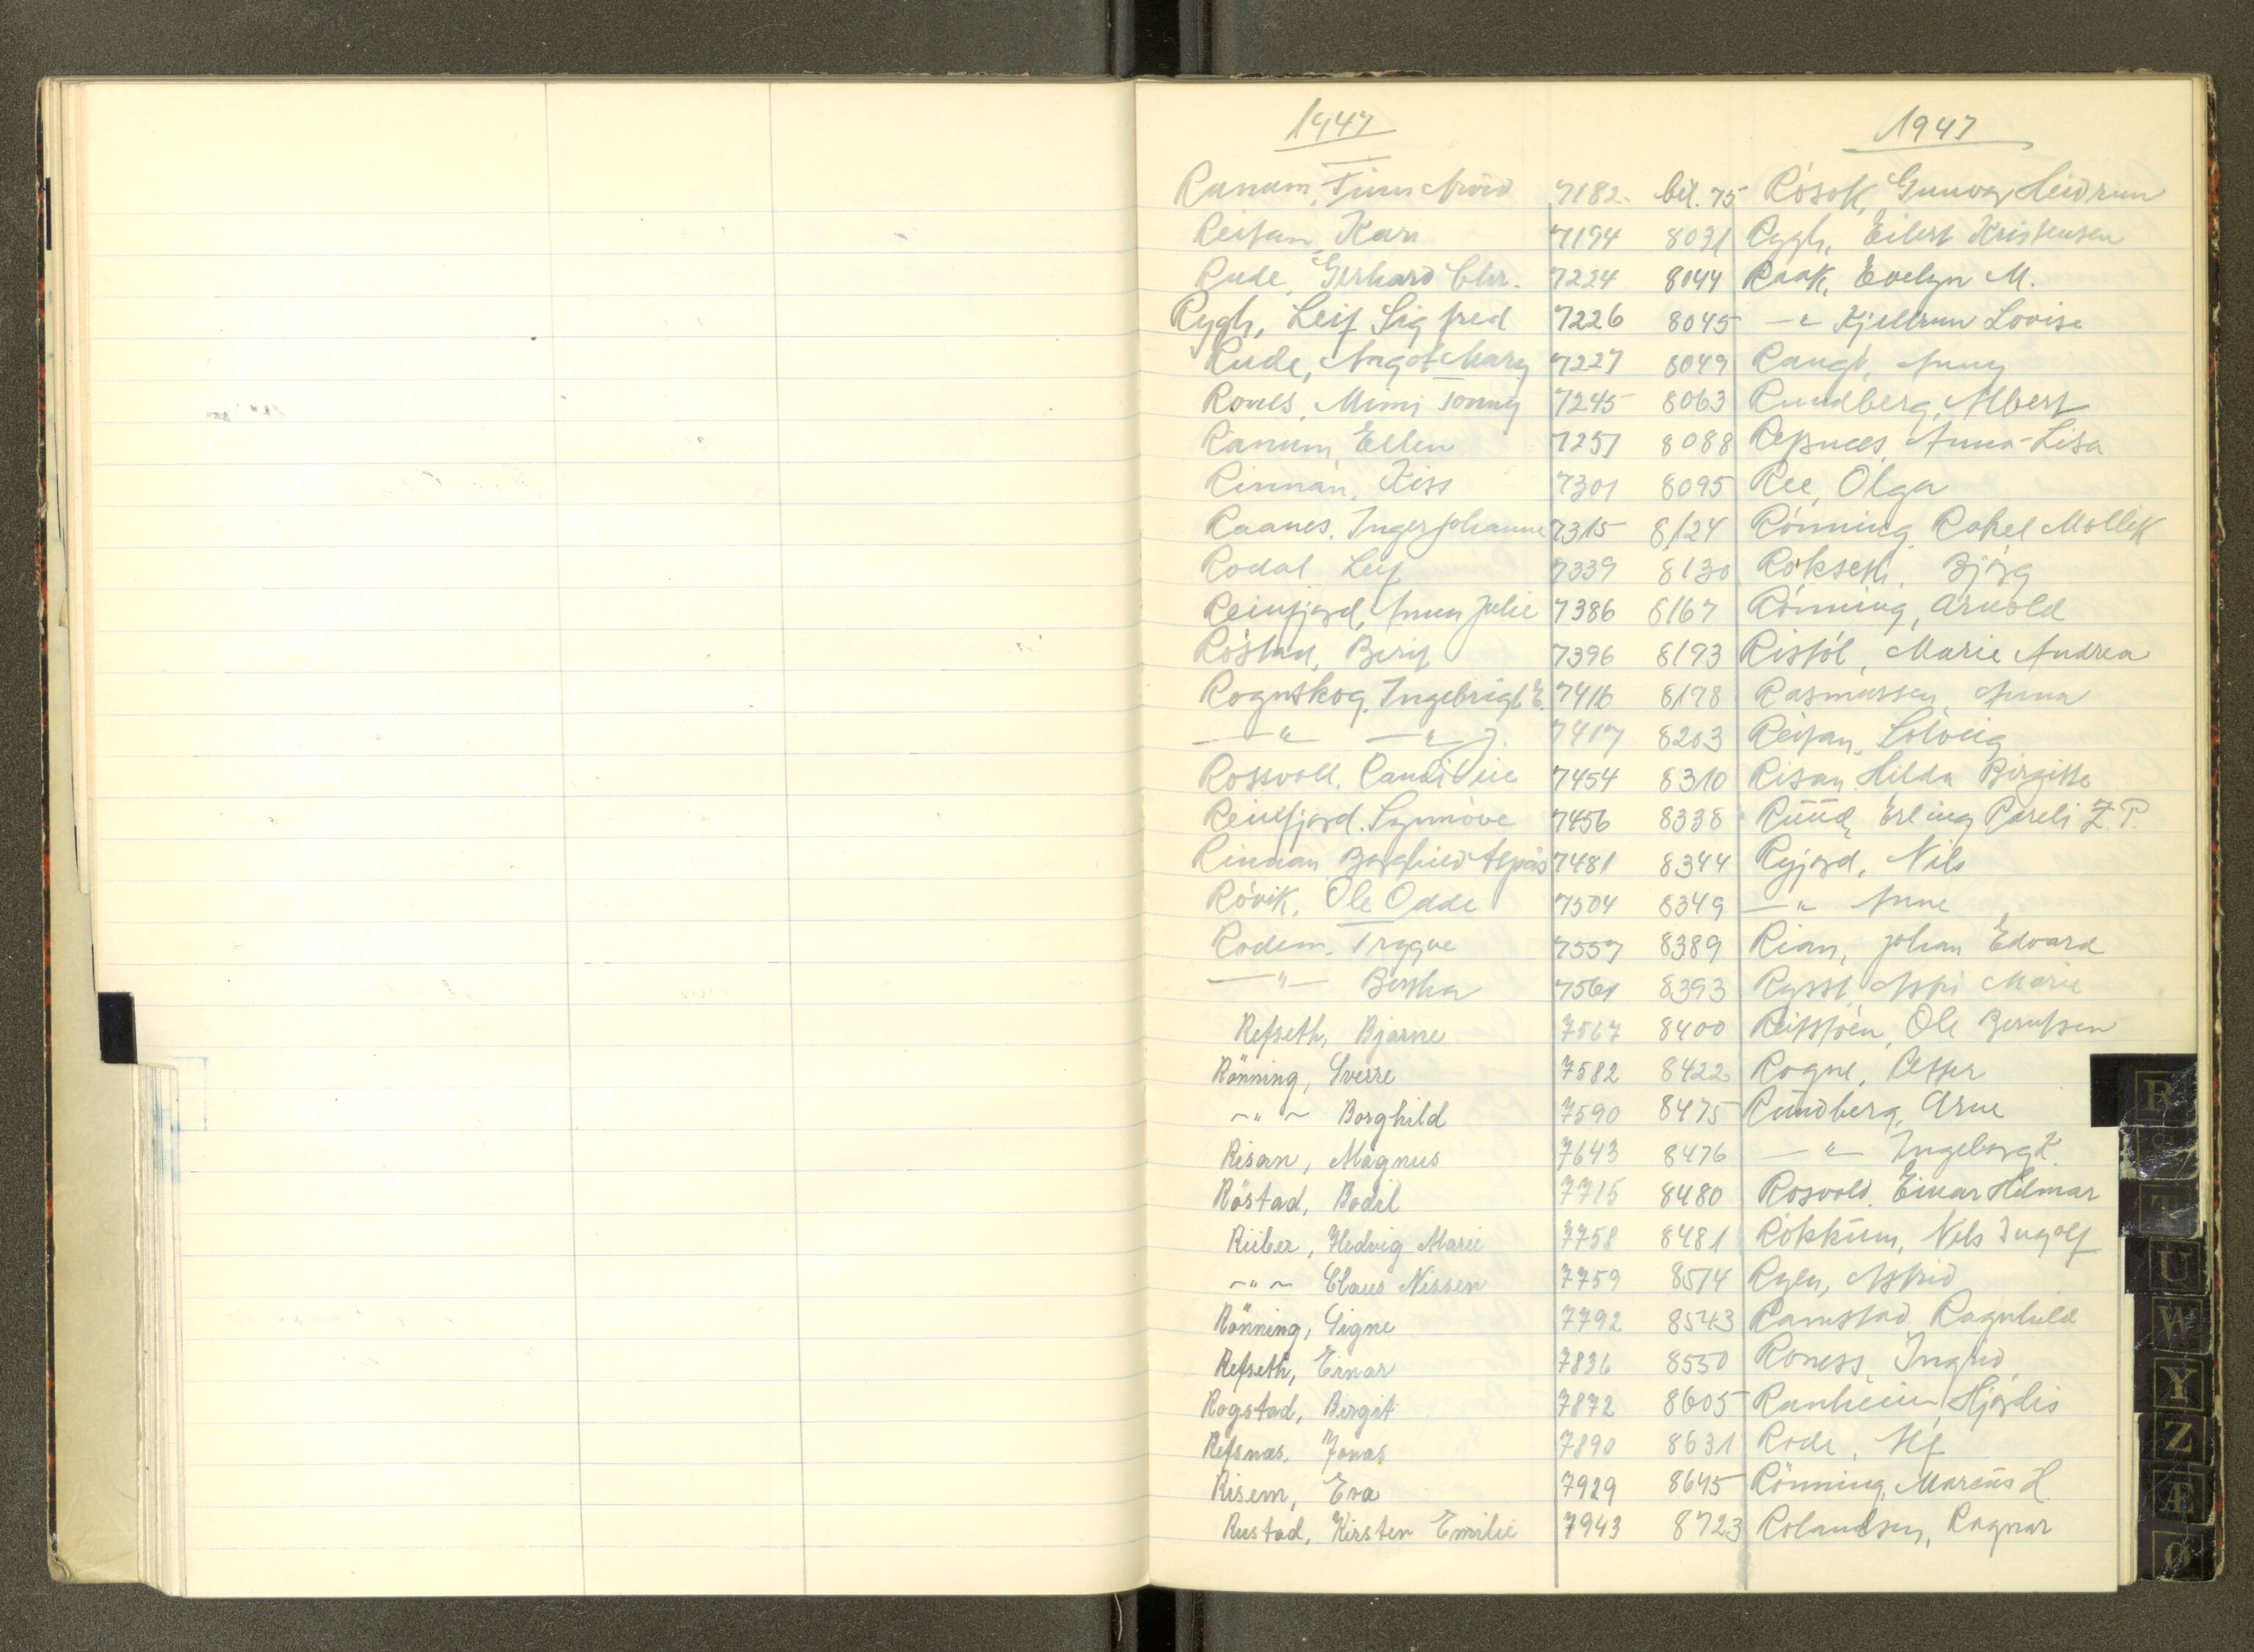 1947 1947
Ranum, Finn Arvid 7182. bil. 75 Rösok, Gunvor Heidrun
Reitan, Kari 7194 8031 Rygh, Eilert Kristensen
Rude, Gerhard Chr. 7224 8044 Raak, Evelyn M.
Rygh, Leif Sigfred 7226 8045 — " Kjellrun Lovise
Rude, Margot Mary 7227 8049 Raugt, Anny
Rones, Mimi Tonny 7245 8063 Rundberg, Albert
Ranum, Ellen 7257 8088 Refsnes, Anna-Lisa
Rinnan, Kiss 7301 8095 Ree, Olga
Raanes, Inger Johanne 7315 8124 Rönning, Rakel Mollik
Rodal Leif 7339 8130 Rokseth, Bjørg
Reinfjord, Anna Julie 7386 8167 Rönning, Arnold
Röstad, Berit 7396 8193 Ristöl, Marie Andrea
Rognskog, Ingebrigt E. 7416 8178 Rasmussen, Anna
— " — — " — J. 7417 8203 Reitan, Solveig
Rossvoll, Randi 7454 8310 Risan, Hilda Birgitte
Reinfjord. Synnöve 7456 8338 Ruud, Erling Pareli Z. P.
Rinnan Borghild Aspås 7481 8344 Ryjord, Nils
Rövik, Ole Odde 7504 8349 — " — Anne
Rodem. Trygve 7557 8389 Rian, Johan Edvard
— " — Bertha 7561 8393 Rysst Astri Marie
Refseth, Bjarne 7567 8400 Reitstöen, Ole Berntsen
Rönning, Sverre 7582 8422 Rogne, Petter
~ " ~ Borghild 7590 8475 Rundberg, Arne
Risan, Magnus 7643 8476 — " — Ingeborg
Röstad, Bodil 7715 8480 Rosvold, Einar Hilmar
Riiber, Hedvig Marie 7758 8481 Rokkum, Nils Ingolf
~ " ~ Claus Nissen 7759 8514 Ryen, Astrid
Rönning, Signe 7792 8543 Ramstad Ragnhild
Refseth, Einar 7836 8550 Roness, Ingrid
Rogstad, Birgit 7872 8605 Ranheim, Hjördis
Refsnæs, Jonas 7890 8631 Rode, Alf
Risem, Eva 7929 8645 Rönning, Marcus H.
Rustad, Kirsten Emilie 7943 8723 Rolandsen, Ragnar
R
S
T
U
W
Y
Z
Æ
Ø